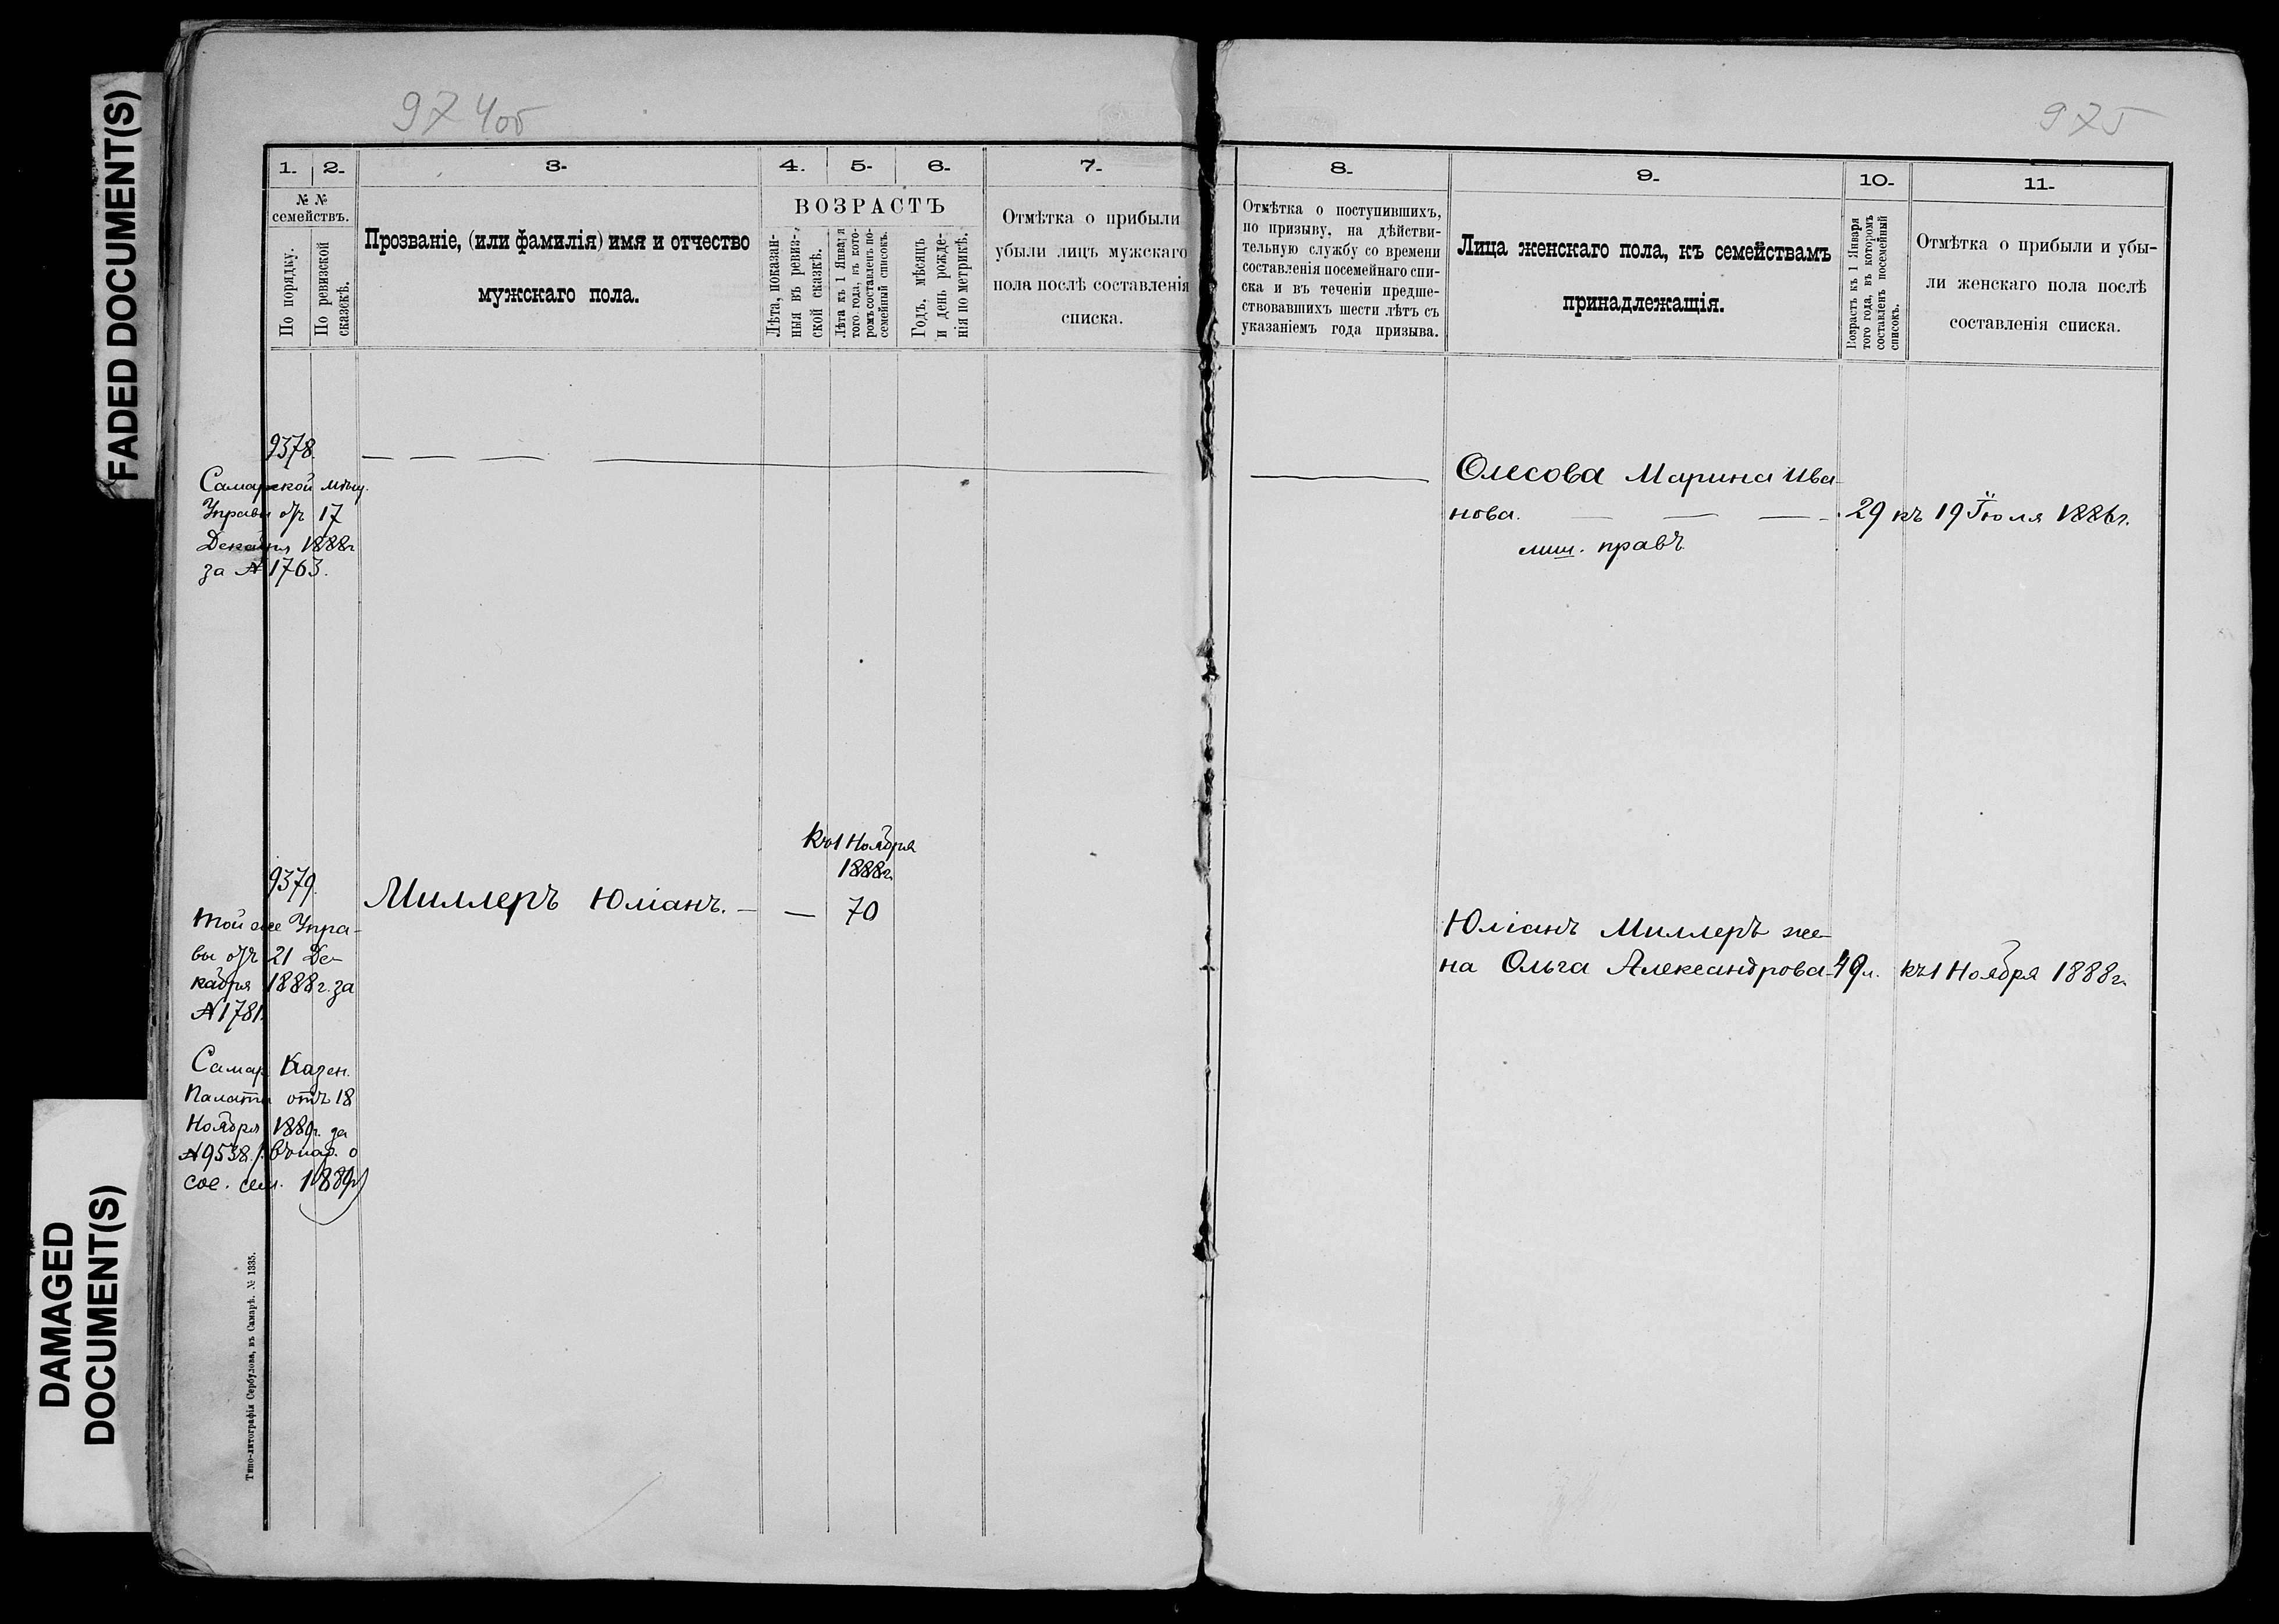 FADED DOCUMENT(S)
DAMAGED
DOCUMENT(S)
974 об
1. 2. 3. 4. 5. 6. 7.
№ №
семействъ.
По порядку.
По ревизской
сказскѣ.
Прозваніе, (или фамилія) имя и отчество
мужскаго пола.
ВОЗРАСТЪ
Лѣта, показан-
ныя въ ревиз-
ской сказкѣ.
Лѣта къ 1 Января
того года, въ кото-
ромъ составленъ по-
семейный списокъ.
Годъ, мѣсяцъ
и день рожде-
нія по метрикѣ.
Отмѣтка о прибыли
убыли лицъ мужскаго
пола послѣ составленія
списка.
9378.
Самарской мѣщ.
Управы отъ 17
Декабря 1888г
за № 1763.
Къ 1 Ноября
1888г.
9379.
Миллеръ Юліанъ. — — 70
Той же Упра-
вы отъ 21 Де-
кабря 1888г. за
№ 1781.
Самар. Казен.
Палаты отъ 18
Ноября 1889г. за
№ 9538.
1889г)
Типо-литографія Сербулова, въ Самарѣ. № 1335.
975
8. 9. 10. 11.
Отмѣтка о поступившихъ,
по призыву, на дѣйстви-
тельную службу со времени
составленія посемейнаго спи-
ска и въ теченіи предше-
ствовавшихъ шести лѣтъ съ
указаніемъ года призыва.
Лица женскаго пола, къ семействамъ
принадлежащія.
Возрастъ къ 1 Января
того года, въ которомъ
составленъ посемейный
списокъ.
Отмѣтка о прибыли и убы-
ли женскаго пола послѣ
составленія списка.
Олесова Марина Ива-
нова. — — — 29 къ 19 Іюля 1886г.
лиш. правъ
Юліанъ Миллеръ же-
на Ольга Александрова 49л. къ 1 Ноября 1888г.